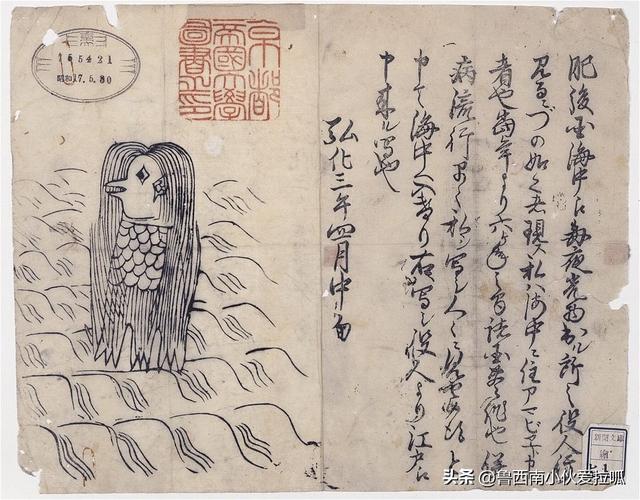 肥後国海中え毎夜光物出ル所之役人行
見るニづの如く者現ス私ハ海中ニ住アマビヱト申
者也当年より六ヶ年之間諸国豊作也併
病流行早々私ヲ写シ人々ニ見せ候得と
申て海中へ入けり右写シ役人より江戸え
申来ル写也
弘化三年四月中旬
京都
帝國大學
圖書之印
165421
昭和17.5.30
新聞文庫
头条 @鲁西南小伙爱拉呱